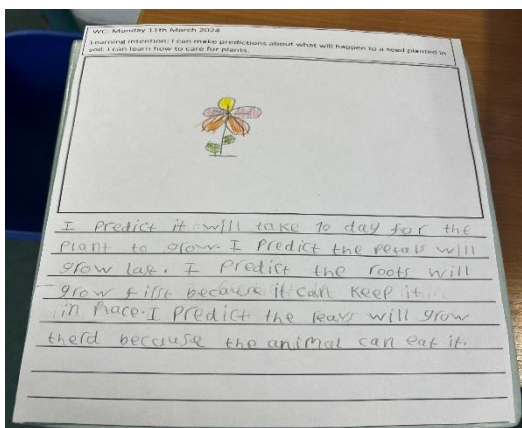 WC: Monday 11th March 2024
Learning Intention: I can make predictions about what will happen to a seed planted in
soil. I can learn how to care for plants.
I predict it will take 10 day for the
plant to grow. I predict the petals will
grow last. I predict the roots will
grow first because it can keep it
in place. I predict the leavs will grow
therd because the animal can eat it.